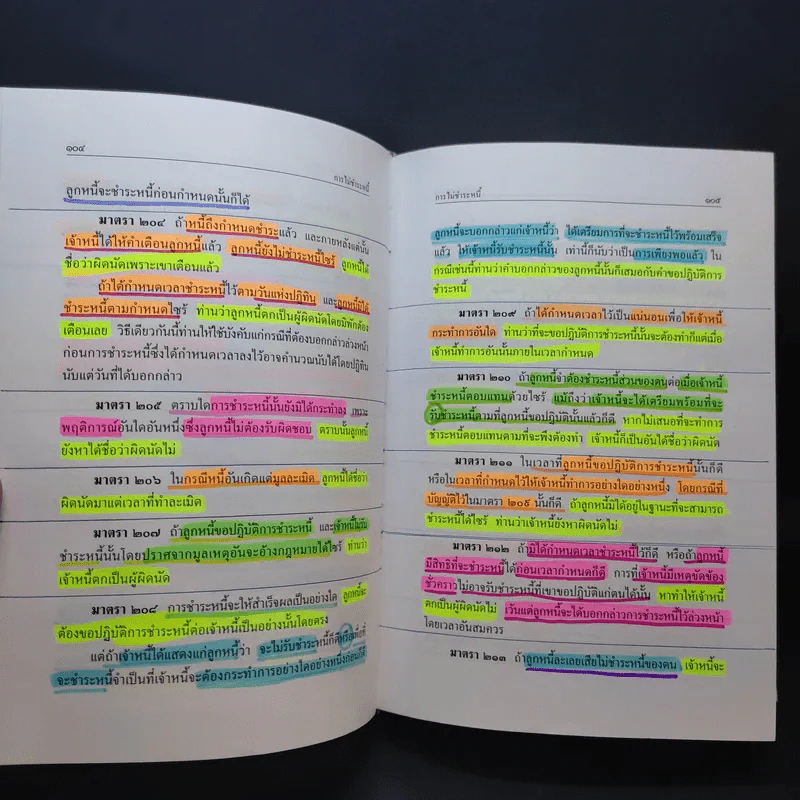 ๑๐๔
การไม่ชำระหนี้
ลูกหนี้จะชำระหนี้ก่อนกำหนดนั้นก็ได้
มาตรา ๒๐๔ ถ้าหนี้ถึงกำหนดชำระแล้ว และภายหลังแต่นั้น
เจ้าหนี้ได้ให้คำเตือนลูกหนี้แล้ว ลูกหนี้ยังไม่ชำระหนี้ไซร้ ลูกหนี้ได้
ชื่อว่าผิดนัดเพราะเขาเตือนแล้ว
ถ้าได้กำหนดเวลาชำระหนี้ไว้ตามวันแห่งปฏิทิน และลูกหนี้มิได้
ชำระหนี้ตามกำหนดไซร้ ท่านว่าลูกหนี้ตกเป็นผู้ผิดนัดโดยมิพักต้อง
เตือนเลย วิธีเดียวกันนี้ท่านให้ใช้บังคับแก่กรณีที่ต้องบอกกล่าวล่วงหน้า
ก่อนการชำระหนี้ซึ่งได้กำหนดเวลาลงไว้อาจคำนวณนับได้โดยปฏิทิน
นับแต่วันที่ได้บอกกล่าว
มาตรา ๒๐๕ ตราบใดการชำระหนี้นั้นยังมิได้กระทำลง เพราะ
พฤติการณ์อันใดอันหนึ่งซึ่งลูกหนี้ไม่ต้องรับผิดชอบ ตราบนั้นลูกหนี้
ยังหาได้ชื่อว่าผิดนัดไม่
มาตรา ๒๐๖ ในกรณีหนี้อันเกิดแต่มูลละเมิด ลูกหนี้ได้ชื่อว่า
ผิดนัดมาแต่เวลาที่ทำละเมิด
มาตรา ๒๐๗ ถ้าลูกหนี้ขอปฏิบัติการชำระหนี้ และเจ้าหนี้ไม่รับ
ชำระหนี้นั้นโดยปราศจากมูลเหตุอันจะอ้างกฎหมายได้ไซร้ ท่านว่า
เจ้าหนี้ตกเป็นผู้ผิดนัด
มาตรา ๒๐๘ การชำระหนี้จะให้สำเร็จผลเป็นอย่างใด ลูกหนี้จะ
ต้องขอปฏิบัติการชำระหนี้ต่อเจ้าหนี้เป็นอย่างนั้นโดยตรง
แต่ถ้าเจ้าหนี้ได้แสดงแก่ลูกหนี้ว่า จะไม่รับชำระหนี้ก็ดีหรือเพื่อที่
จะชำระหนี้จำเป็นที่เจ้าหนี้จะต้องกระทำการอย่างใดอย่างหนึ่งก่อนก็ดี
การไม่ชำระหนี้
๑๐๕
ลูกหนี้จะบอกกล่าวแก่เจ้าหนี้ว่า ได้เตรียมการที่จะชำระหนี้ไว้พร้อมเสร็จ
แล้ว ให้เจ้าหนี้รับชำระหนี้นั้น เท่านี้ก็นับว่าเป็นการเพียงพอแล้ว ใน
กรณีเช่นนี้ท่านว่าคำบอกกล่าวของลูกหนี้นั้นก็เสมอกับคำขอปฏิบัติการ
ชำระหนี้
มาตรา ๒๐๙ ถ้าได้กำหนดเวลาไว้เป็นแน่นอนเพื่อให้เจ้าหนี้
กระทำการอันใด ท่านว่าที่จะขอปฏิบัติการชำระหนี้นั้นจะต้องทำก็แต่เมื่อ
เจ้าหนี้ทำการอันนั้นภายในเวลากำหนด
มาตรา ๒๑๐ ถ้าลูกหนี้จำต้องชำระหนี้ส่วนของตนต่อเมื่อเจ้าหนี้
ชำระหนี้ตอบแทนด้วยไซร้ แม้ถึงว่าเจ้าหนี้จะได้เตรียมพร้อมที่จะ
รับชำระหนี้ตามที่ลูกหนี้ขอปฏิบัตินั้นแล้วก็ดี หากไม่เสนอที่จะทำการ
ชำระหนี้ตอบแทนตามที่จะพึงต้องทำ เจ้าหนี้ก็เป็นอันได้ชื่อว่าผิดนัด
มาตรา ๒๑๑ ในเวลาที่ลูกหนี้ขอปฏิบัติการชำระหนี้นั้นก็ดี
หรือในเวลาที่กำหนดไว้ให้เจ้าหนี้ทำการอย่างใดอย่างหนึ่ง โดยกรณีที่
บัญญัติไว้ในมาตรา ๒๐๙ นั้นก็ดี ถ้าลูกหนี้มิได้อยู่ในฐานะที่จะสามารถ
ชำระหนี้ได้ไซร้ ท่านว่าเจ้าหนี้ยังหาผิดนัดไม่
มาตรา ๒๑๒ ถ้ามิได้กำหนดเวลาชำระหนี้ไว้ก็ดี หรือถ้าลูกหนี้
มีสิทธิที่จะชำระหนี้ได้ก่อนเวลากำหนดก็ดี การที่เจ้าหนี้มีเหตุขัดข้อง
ชั่วคราวไม่อาจรับชำระหนี้ที่เขาขอปฏิบัติแก่ตนได้นั้น หาทำให้เจ้าหนี้
ตกเป็นผู้ผิดนัดไม่ เว้นแต่ลูกหนี้จะได้บอกกล่าวการชำระหนี้ไว้ล่วงหน้า
โดยเวลาอันสมควร
มาตรา ๒๑๓ ถ้าลูกหนี้ละเลยเสียไม่ชำระหนี้ของตน เจ้าหนี้จะ